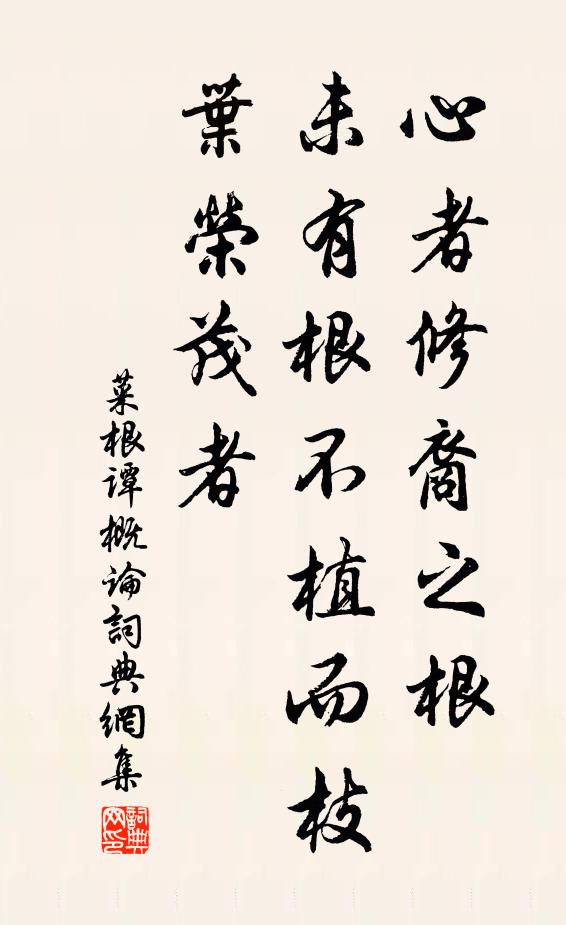 心者修裔之根
未有根不植而枝
葉榮茂者
菜根譚概論詞典網集
詞典网印